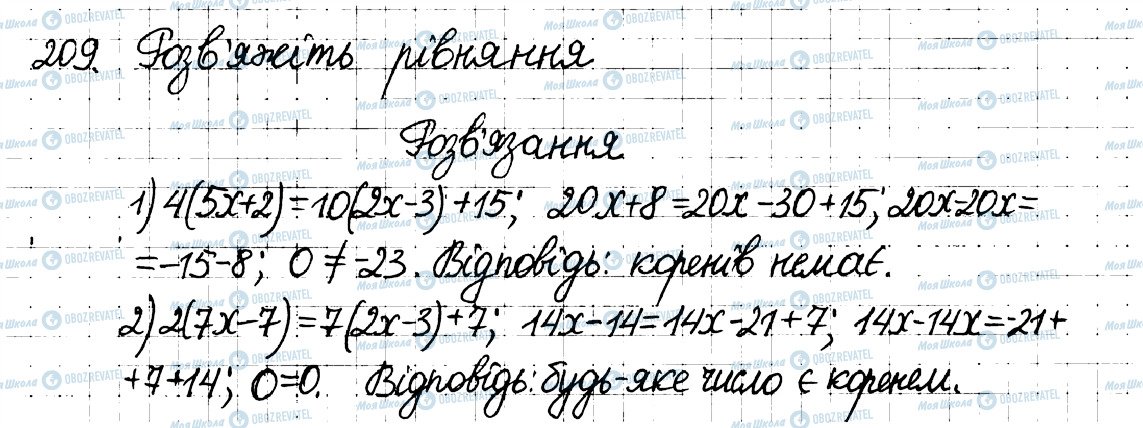 209. Розв'яжіть рівняння
Розв'язання
1) 4(5x+2)=10(2x-3)+15; 20x+8=20x-30+15; 20x-20x=
=-15-8; 0≠-23. Відповідь: коренів немає.
2) 2(7x-7)=7(2x-3)+7; 14x-14=14x-21+7; 14x-14x=-21+
+7+14; 0=0. Відповідь: будь-яке число є коренем.